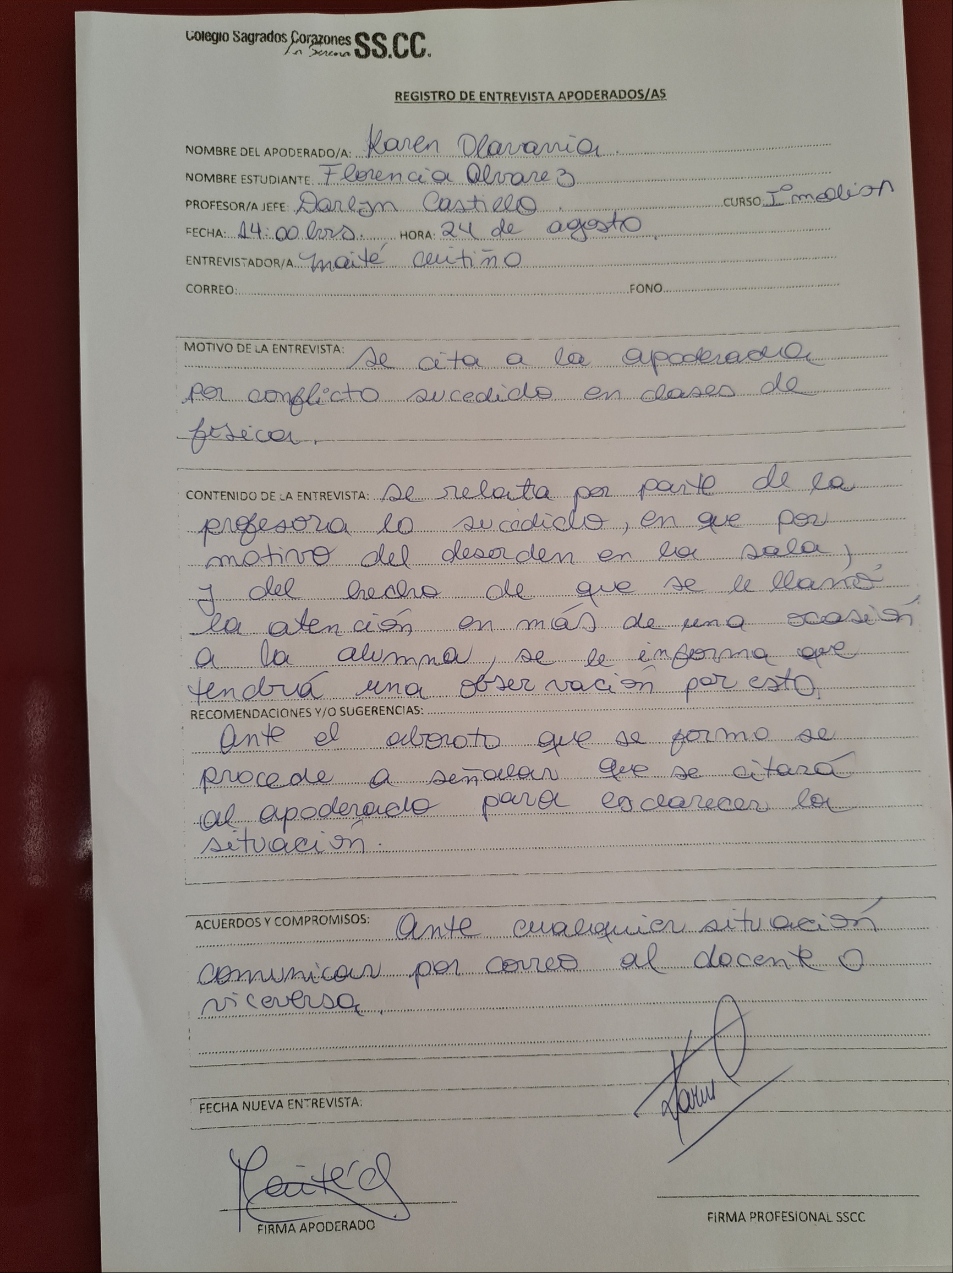 Colegio Sagrados Corazones
La Serena SS.CC.
REGISTRO DE ENTREVISTA APODERADOS/AS
NOMBRE DEL APODERADO/A: Karen Olavarria
NOMBRE ESTUDIANTE: Florencia Alvarez
PROFESOR/A JEFE: Darlyn Castillo CURSO I° medio A
FECHA: 14:00 hrs. HORA: 24 de agosto
ENTREVISTADOR/A Maité
CORREO: FONO
MOTIVO DE LA ENTREVISTA: Se cita a la apoderada
por conflicto sucedido en clases de
física.
CONTENIDO DE LA ENTREVISTA: Se relata por parte de la
profesora lo sucedido, en que por
motivo del desorden en la sala,
y del hecho de que se le llamó
la atención en más de una ocasión
a la alumna, se le informa que
tendrá una observación por esto.
RECOMENDACIONES Y/O SUGERENCIAS:
Ante el alboroto que se formo se
procede a señalar que se citará
al apoderado para esclarecer la
situación.
ACUERDOS Y COMPROMISOS: Ante cualquier situación
comunicar por correo al docente o
viceversa.
FECHA NUEVA ENTREVISTA:
FIRMA APODERADO
FIRMA PROFESIONAL SSCC